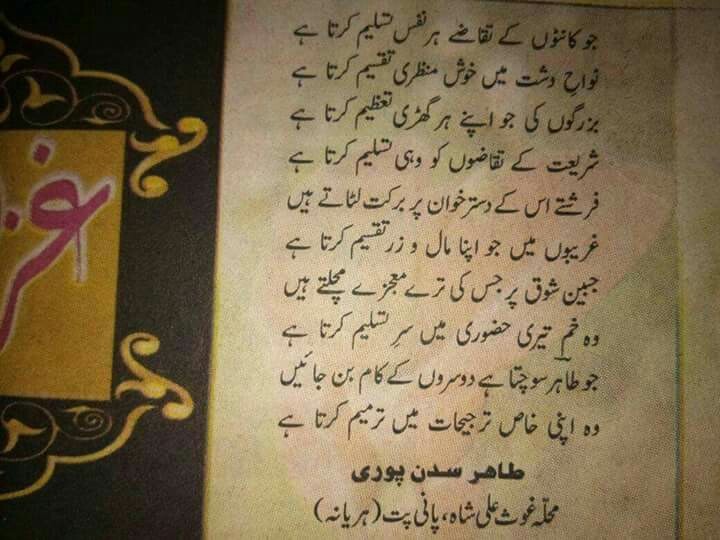 جو کانٹوں کے تقاضے ہر نفس تسلیم کرتا ہے
نواحِ دشت میں خوش منظری تقسیم کرتا ہے
بزرگوں کی جو اپنے ہر گھڑی تعظیم کرتا ہے
شریعت کے تقاضوں کو وہی تسلیم کرتا ہے
فرشتے اس کے دسترخوان پر برکت لٹاتے ہیں
غریبوں میں جو اپنا مال و زر تقسیم کرتا ہے
جبین شوق پر جس کی ترے معجزے مچلتے ہیں
وہ خم تیری حضوری میں سرِ تسلیم کرتا ہے
جو طاہر سوچتا ہے دوسروں کے کام بن جائیں
وہ اپنی خاص ترجیحات میں ترمیم کرتا ہے
طاہر سدن پوری
محلہ غوث علی شاہ، پانی پت (ہریانہ)